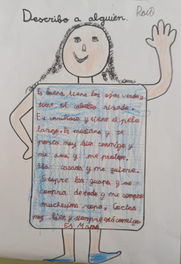 Describo a alguien. Rocío
Es buena, tiene los ojos verdes y
tiene el cabello rizado.
Es cariñosa y tiene el pelo
largo. Es mediana y se
porta muy bien conmigo y
me ama y me protege.
Está casada y me quiere.
Siempre los guapa y me
compra de todo y me compra
muchisima ropa. Cocina
muy bien y siempre está conmigo.
Es Mamá